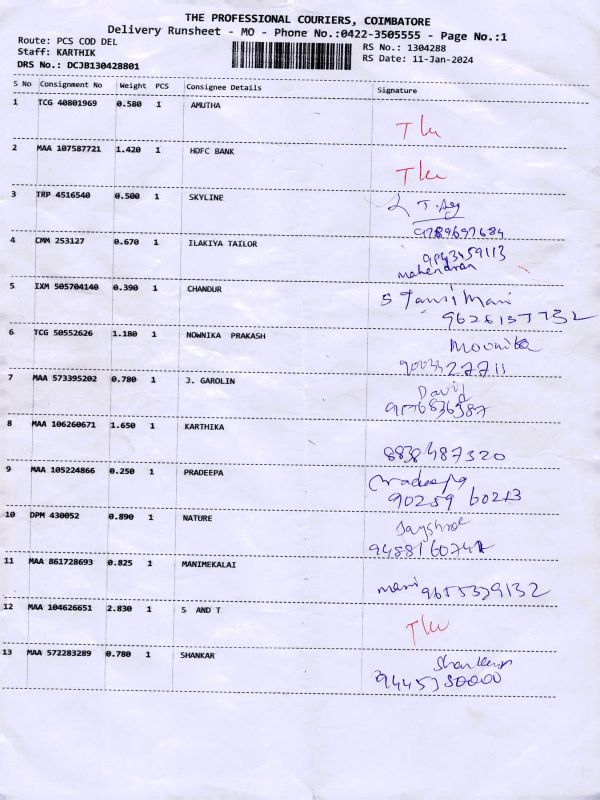 THE PROFESSIONAL COURIERS, COIMBATORE
Delivery Runsheet - MO - Phone No.:0422-3505555 - Page No.:1
Route: PCS COD DEL
Staff: KARTHIK
DRS No.: DCJB130428801
RS No.: 1304288
RS Date: 11-Jan-2024
S No Consignment No Weight PCS Consignee Details Signature
1 TCG 40801969 0.580 1 AMUTHA
2 MAA 107587721 1.420 1 HDFC BANK
3 TRP 4516540 0.500 1 SKYLINE
9789697684
4 CMM 253127 0.670 1 ILAKIYA TAILOR
9843459113
mahendran
5 IXM 505704140 0.390 1 CHANDUR
9626137732
6 TCG 50552626 1.180 1 NOWNIKA PRAKASH
7 MAA 573395202 0.780 1 J. GAROLIN
David
8 MAA 106260671 1.650 1 KARTHIKA
8838487320
9 MAA 105224866 0.250 1 PRADEEPA
Pradeepa
90259 60213
10 DPM 430052 0.890 1 NATURE
11 MAA 861728693 0.825 1 MANIMEKALAI
mani 9655329132
12 MAA 104626651 2.830 1 S AND T
13 MAA 572283289 0.780 1 SHANKAR